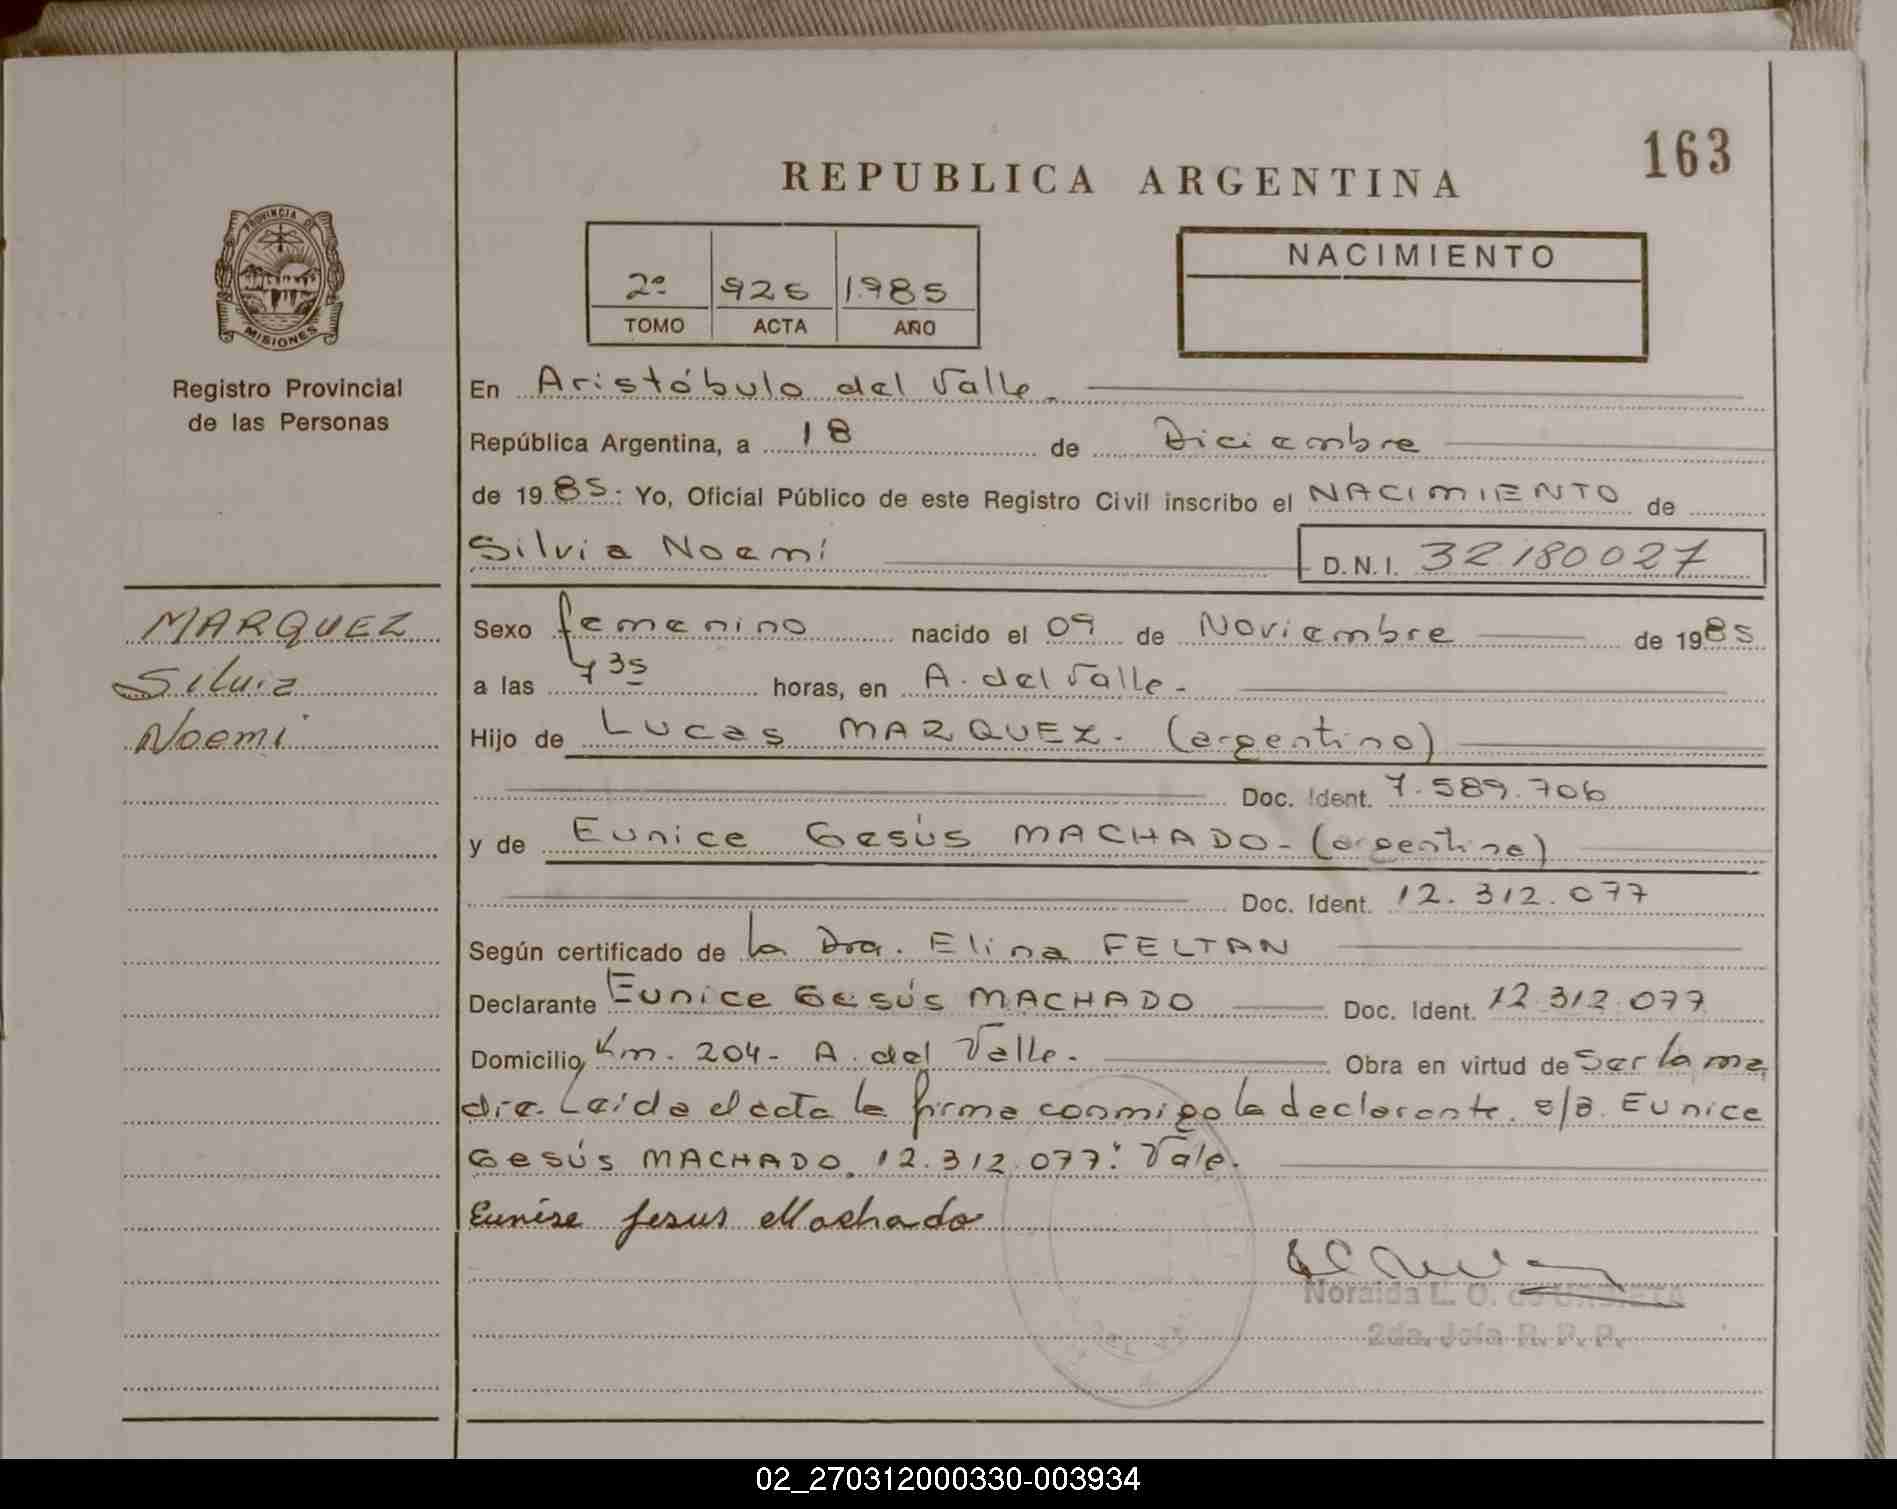 163
REPUBLICA ARGENTINA
PROVINCIA DE
MISIONES
Registro Provincial
de las Personas
2º 925 1.985
TOMO ACTA AÑO
NACIMIENTO
En Aristóbulo del Valle.
República Argentina, a 18 de Diciembre
de 1985: Yo, Oficial Público de este Registro Civil inscribo el NACIMIENTO de
Silvia Noemí
D.N.I. 32.180027
MARQUEZ
Silvia
Noemi
Sexo femenino nacido el 09 de Noviembre de 1985
a las 7 35 horas, en A. del Valle.-
Hijo de Lucas MARQUEZ. (argentino)
Doc. Ident. 7.589.706
y de Eunice Gesús MACHADO- (argentina)
Doc. Ident. 12.312.077
Según certificado de la Dra. Elina FELTAN
Declarante Eunice Gesús MACHADO Doc. Ident. 12.312.077
Domicilio Km. 204- A. del Valle. Obra en virtud de Ser la ma
dre. Leida el acta la firma conmigo la declarante. s/a. Eunice
Gesús MACHADO. 12.312.077: Vale.
Eunise Jesus Machado
Noraida L. O. de
2da. Jefa R. P. P.
02_270312000330-003934